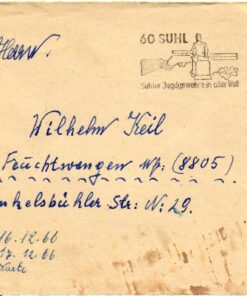 Herrn.
60 SUHL 9
Suhler Jagdgewehre in aller Welt
Wilhelm Keil
Feuchtwangen wp: (8805)
nkelsbühler Str: N: 29.
16.12.66
17.12.66
Karte